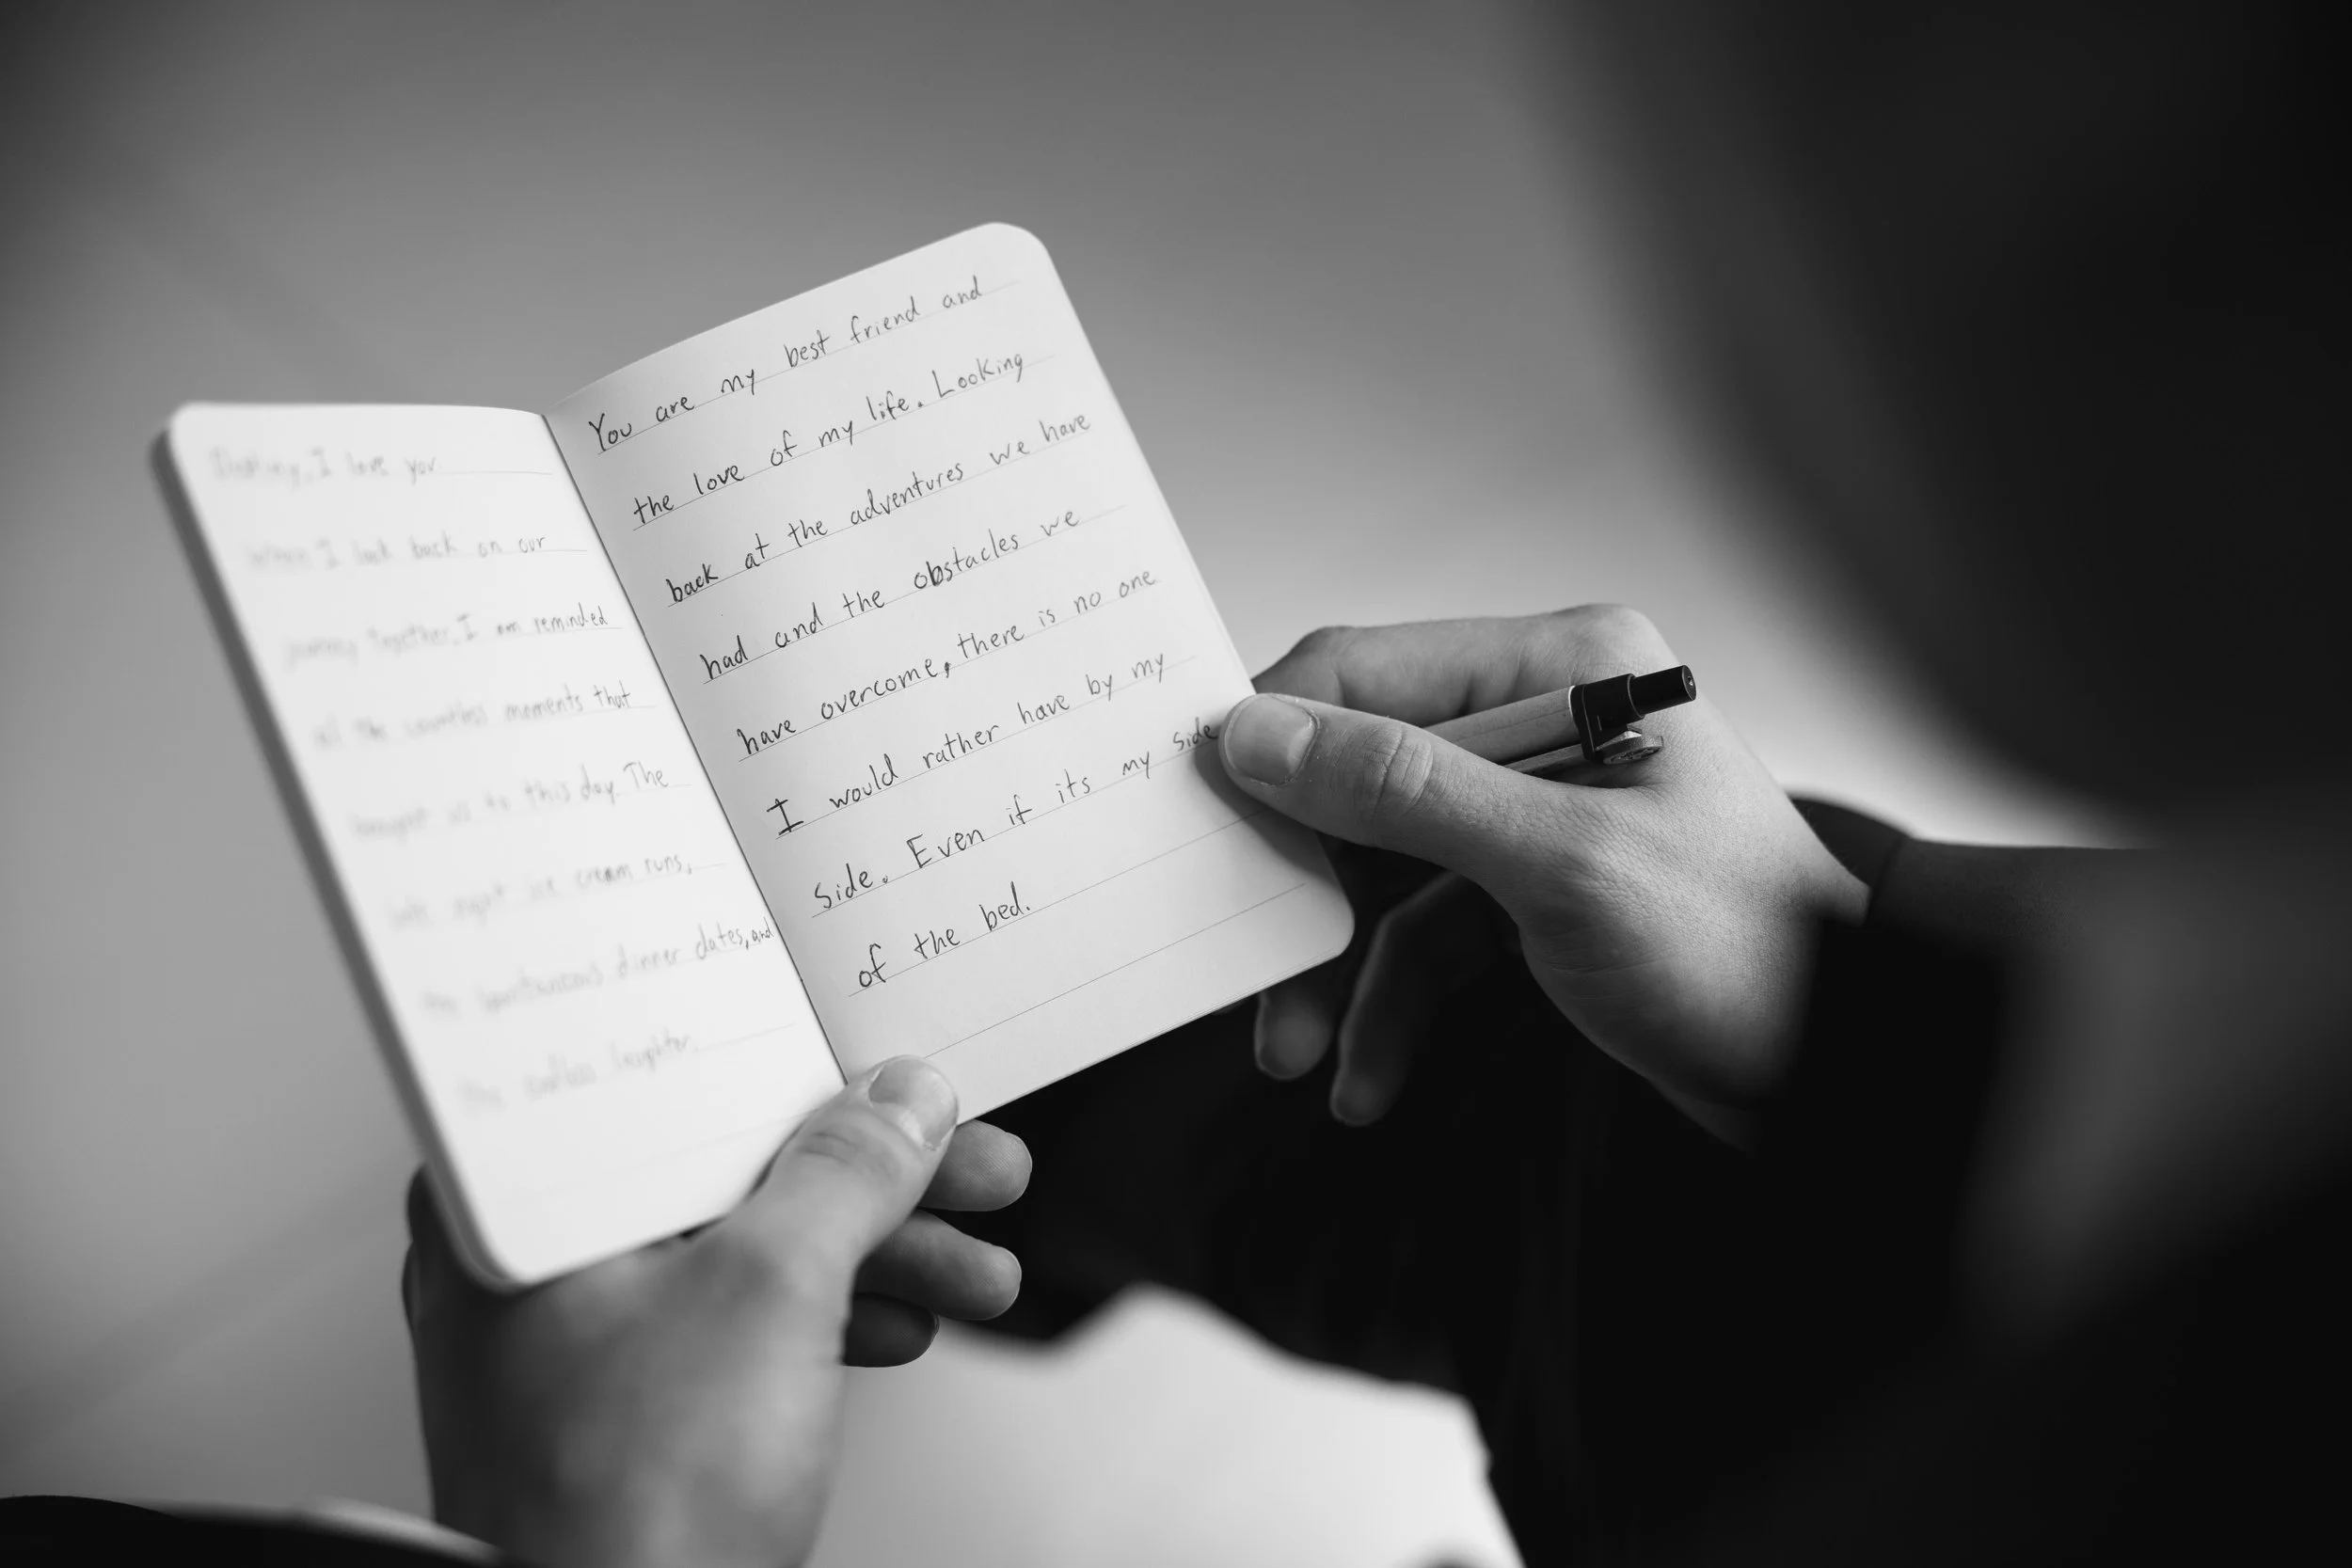 I love you.
When I look back on our
journey together, I am reminded
of the countless moments that
brought us to this day. The
late night ice cream runs,
the spontaneous dinner dates, and
the endless laughter.
You are my best friend and
the love of my life. Looking
back at the adventures we have
had and the obstacles we
have overcome, there is no one
I would rather have by my
side. Even if its my side
of the bed.